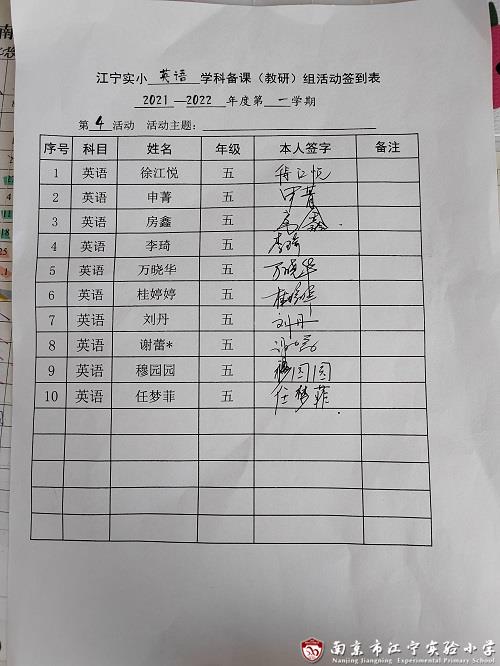 江宁实小 英语 学科备课（教研）组活动签到表
2021—2022 年度第 一 学期
第 4 活动 活动主题：
序号 科目 姓名 年级 本人签字 备注
1 英语 徐江悦 五 徐江悦
2 英语 申菁 五 申菁
3 英语 房鑫 五 房鑫
4 英语 李琦 五 李琦
5 英语 万晓华 五 万晓华
6 英语 桂婷婷 五
7 英语 刘丹 五 刘丹
8 英语 谢蕾* 五
9 英语 穆园园 五 穆园园
10 英语 任梦菲 五 任梦菲
南京市江宁实验小学
Nanjing Jiangning Experimental Primary School